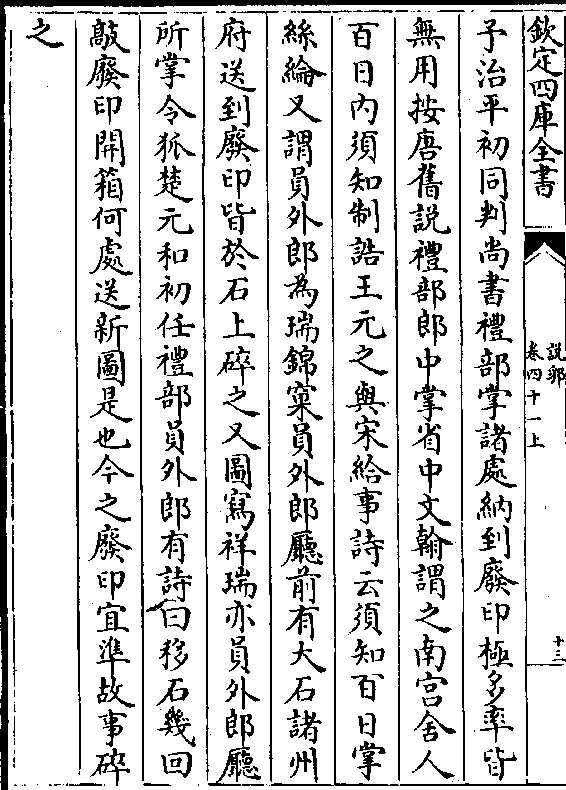 欽定四庫全書
說郛
卷四十一上
十三
予治平初同判尚書禮部掌諸處納到廢印極多率皆
無用按唐舊說禮部郎中掌省中文翰謂之南宫舍人
百日内須知制誥王元之與宋給事詩云須知百日掌
絲綸又謂員外郎為瑞錦窠員外郎廳前有大石諸州
府送到廢印皆於石上碎之又圖寫祥瑞亦員外郎廳
所掌令狐楚元和初任禮部員外郎有詩曰移石幾回
敲廢印開箱何處送新圖是也今之廢印宜準故事碎
之